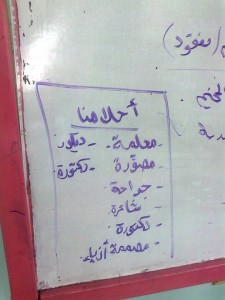 مفقود)
أحلامنا
- معلمة - ديكور
- مصورة - دكتورة
- جراحة
- شاعرة
- دكتورة
- مصممة أزياء